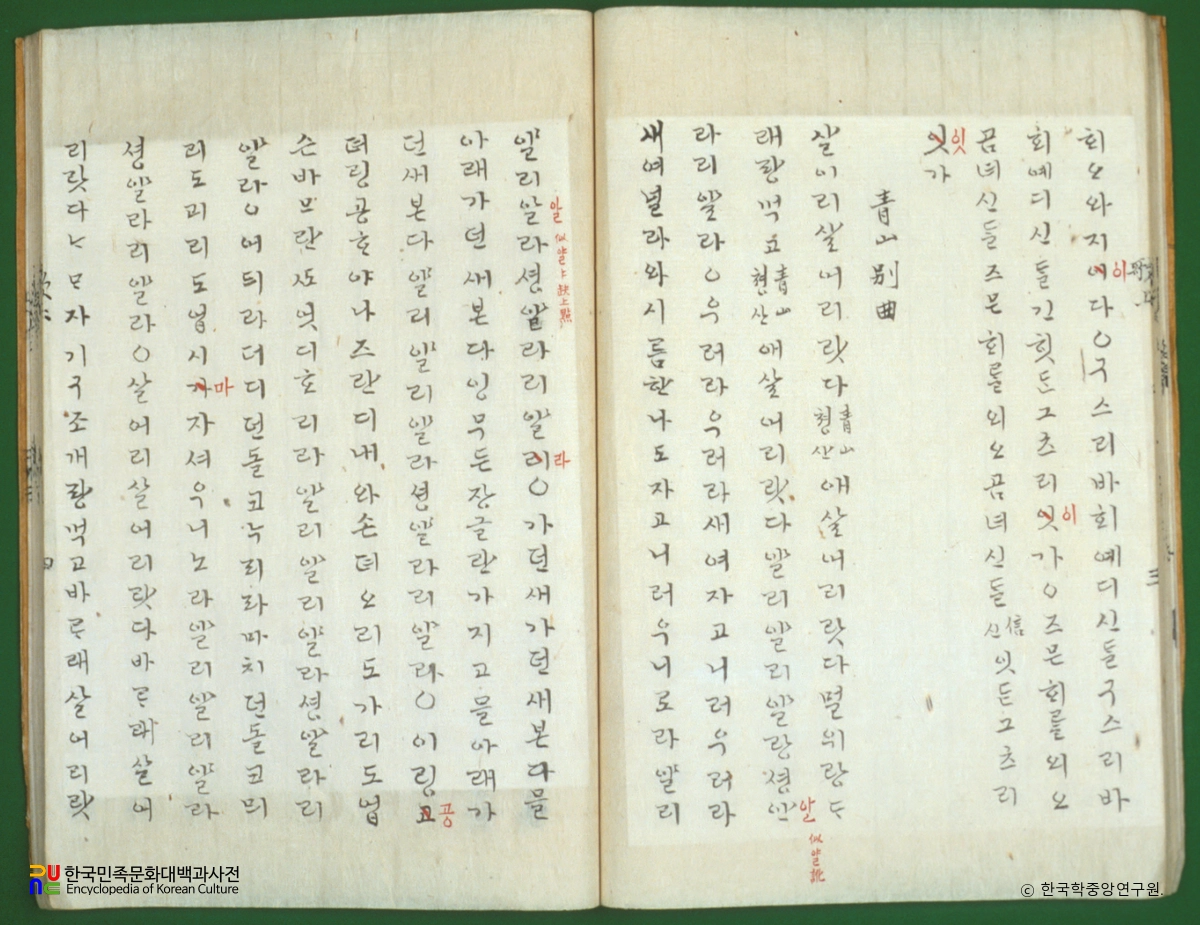 회오와지이다○구스리바회예디신들구스리바
이
회예디신들긴힛든그츠리잇가○즈믄회를외오
이
곰녀신들즈믄회를외오곰녀신들信신잇든그츠리
잇가
잇
靑山別曲
살이리살어리랏다靑山쳥산애살어리랏다멀위랑ᄃᆞ
래랑먹고靑山쳥산애살어리랏다얄리얄리얄랑셩얀
알 似얄訛
라리얄라○우러라우러라새여자고니러우러라
새여널라와시름한나도자고니러우니로라얄리
얄리알라셩얄라리얄리○가던새가던새본다믈
알 似얄 缺上點
라
아래가던새본다잉무든장글란가지고믈아래가
던새본다얄리얄리얄라셩얄라리얄라○이링고
공
뎌링공ᄒᆞ야나즈란디내와손뎌오리도가리도업
슨바므란ᄯᅩ엇디호리라얄리얄리얄라셩얄라리
얄라○어듸라더디던돌코누리라마치던돌코믜
리도괴리도업시가자셔우니노라얄리얄리얄라
마
셩얄라리얄라○살어리살어리랏다바ᄅᆞ래살어
리랏다ᄂᆞᄆᆞ자기구조개랑먹고바ᄅᆞ래살어리랏
三
四
한국민족문화대백과사전
Encyclopedia of Korean Culture
© 한국학중앙연구원.